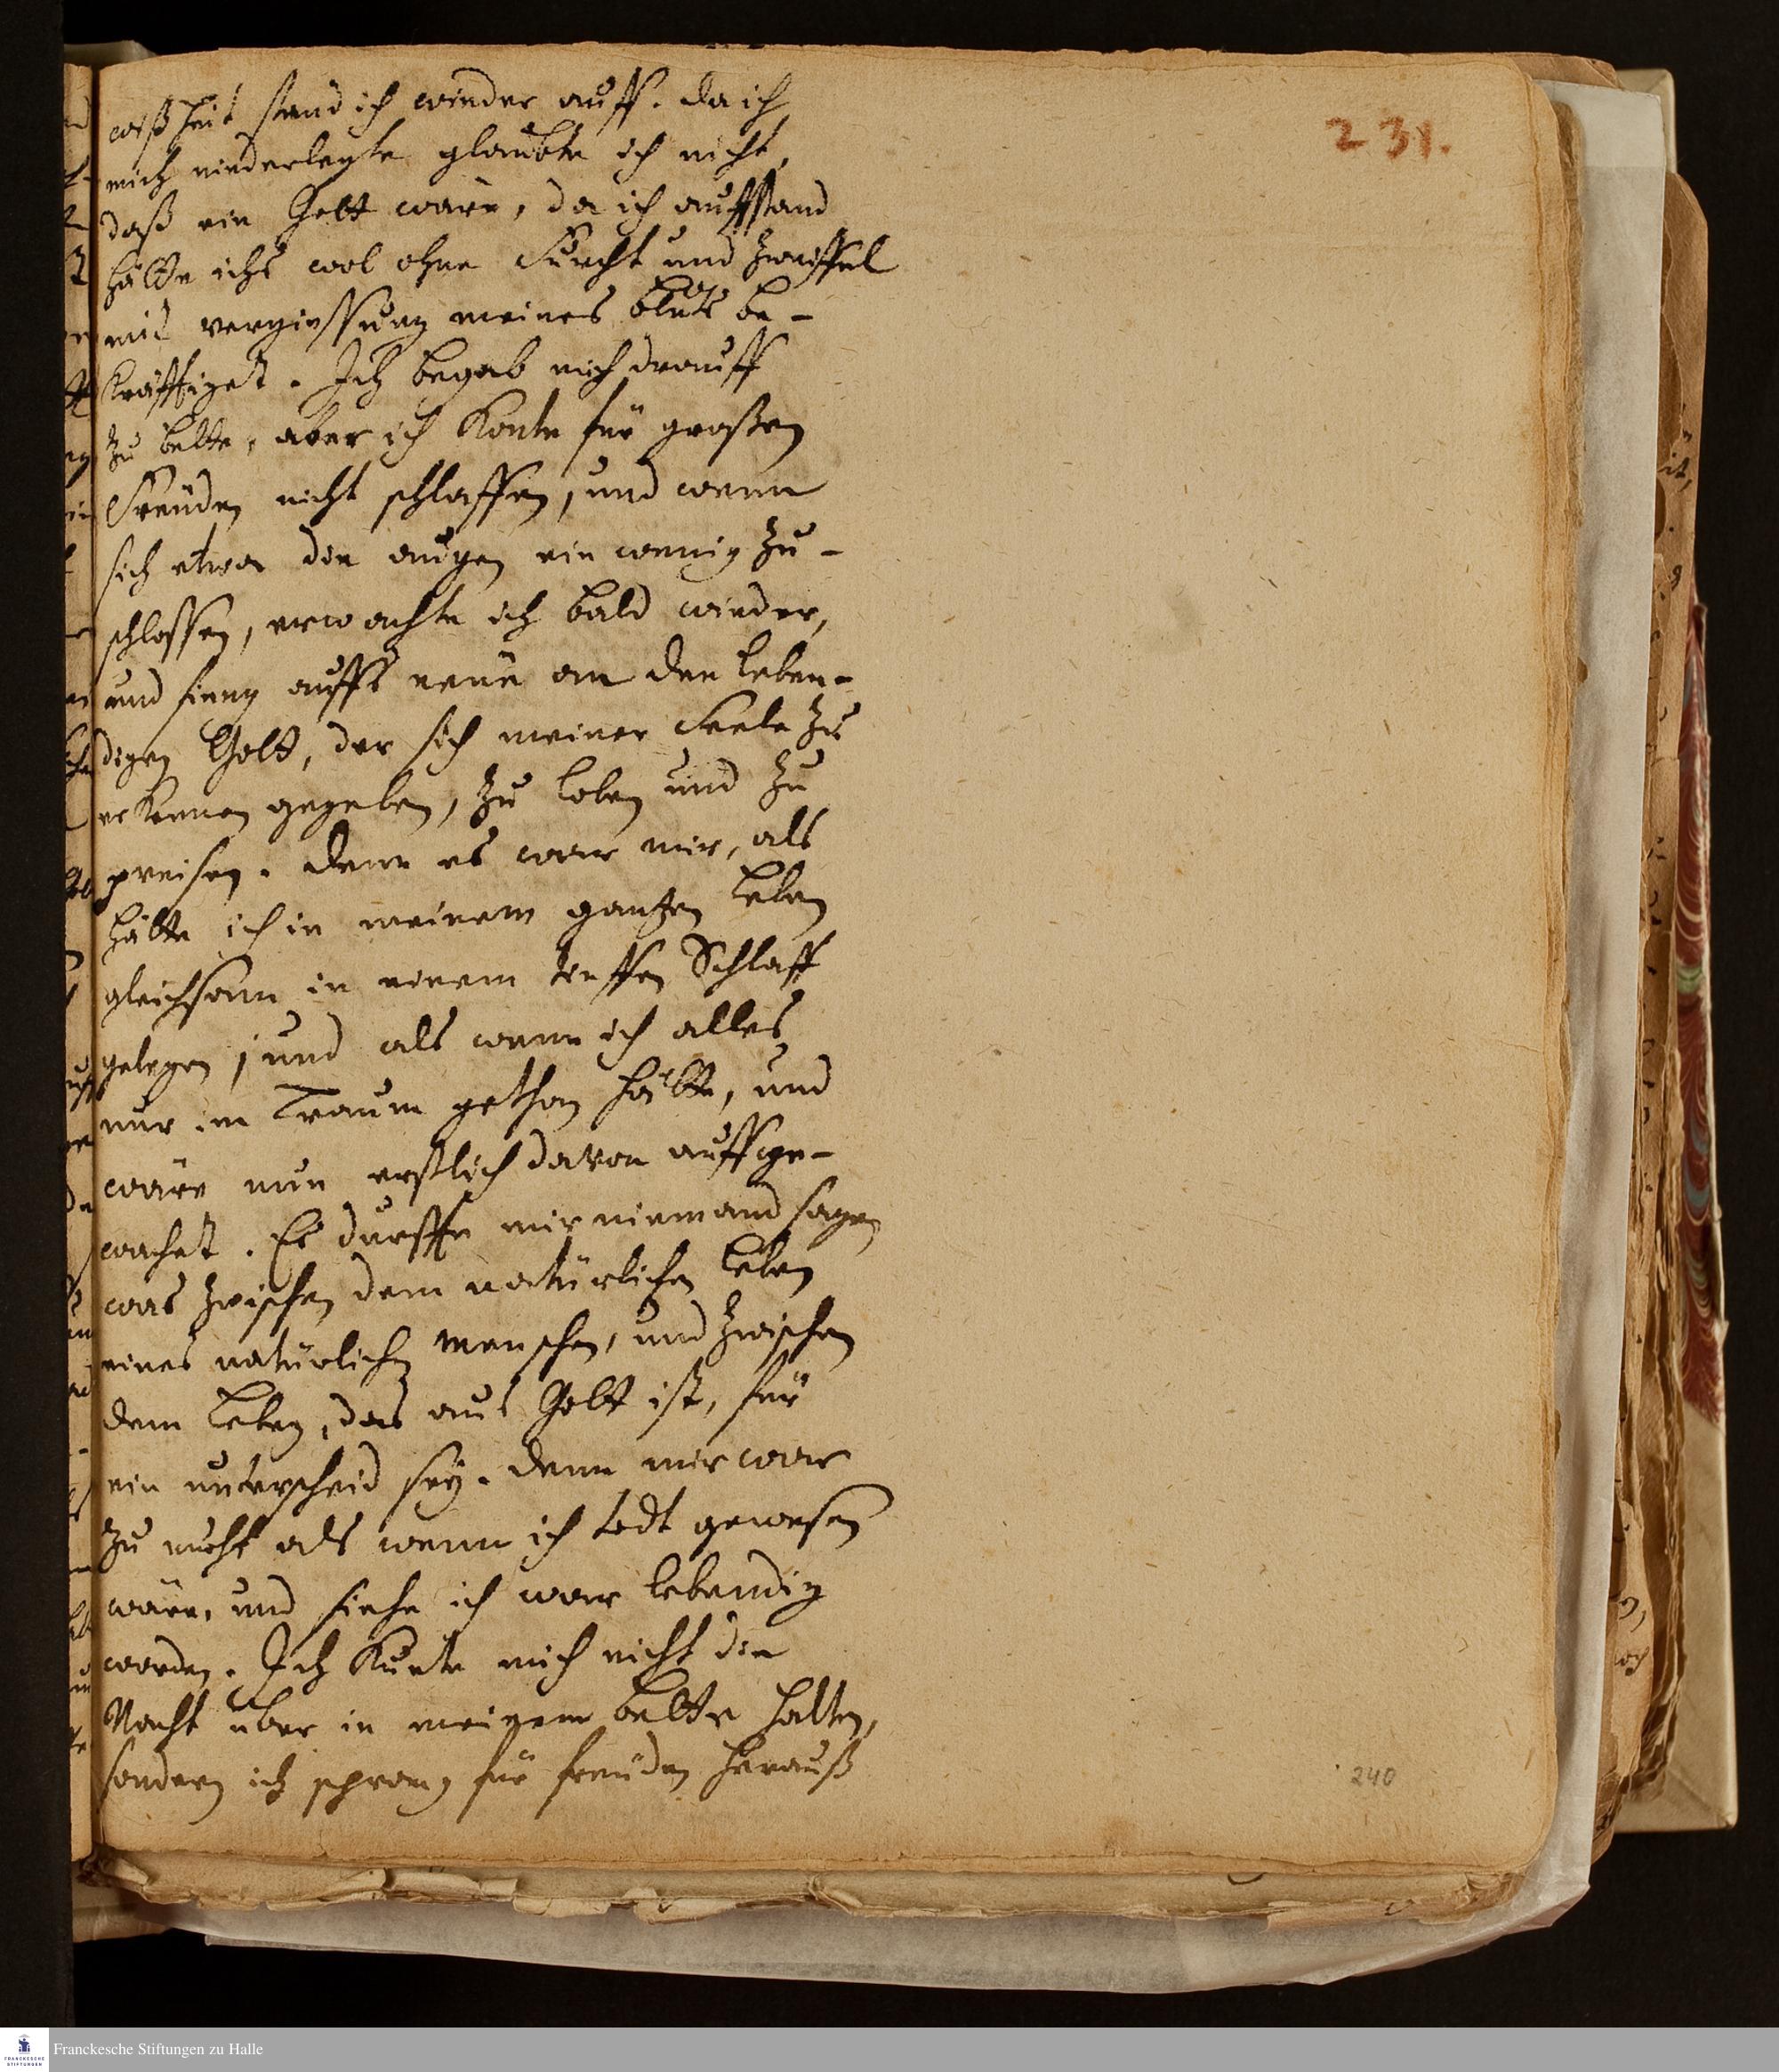 wißheit stand ich wieder auff. da ich
mich niederlegte glaubte ich nicht,
daß ein Gott wäre, da ich auffstand
hätte ichs wol ohne Furcht und Zweiffel
mit vergiessung meines bluts be-
kräfftiget. Ich begab mich drauff
zu bette, aber ich konte für großen
Freüden nicht schlaffen, und wenn
sich etwa die augen ein wenig zu-
schlossen, erwachte ich bald wieder,
und fieng auffs neüe an den leben-
digen Gott, der sich meiner Seele zu
erkennen gegeben, zu loben und zu
preisen. denn es war mir, als
hätte ich in meinem gantzen Leben
gleichsam in einem tieffen Schlaff
gelegen, und als wenn ich alles
nur im Traum gethan hätte, und
wäre nun erstlich davon auffge-
wachet. Es durffte mir niemand sagen
was zwischen dem natürlichen Leben
eines natürlichen menschen, und zwischen
dem Leben, das aus Gott ist, für
ein unterscheid sey. denn mir war
zu muht als wenn ich todt gewesen
wäre, und siehe ich war lebendig
worden. Ich kunte mich nicht die
Nacht über in meinem bette halten,
sondern ich sprang für freüden herauß
231.
240
Franckesche Stiftungen zu Halle